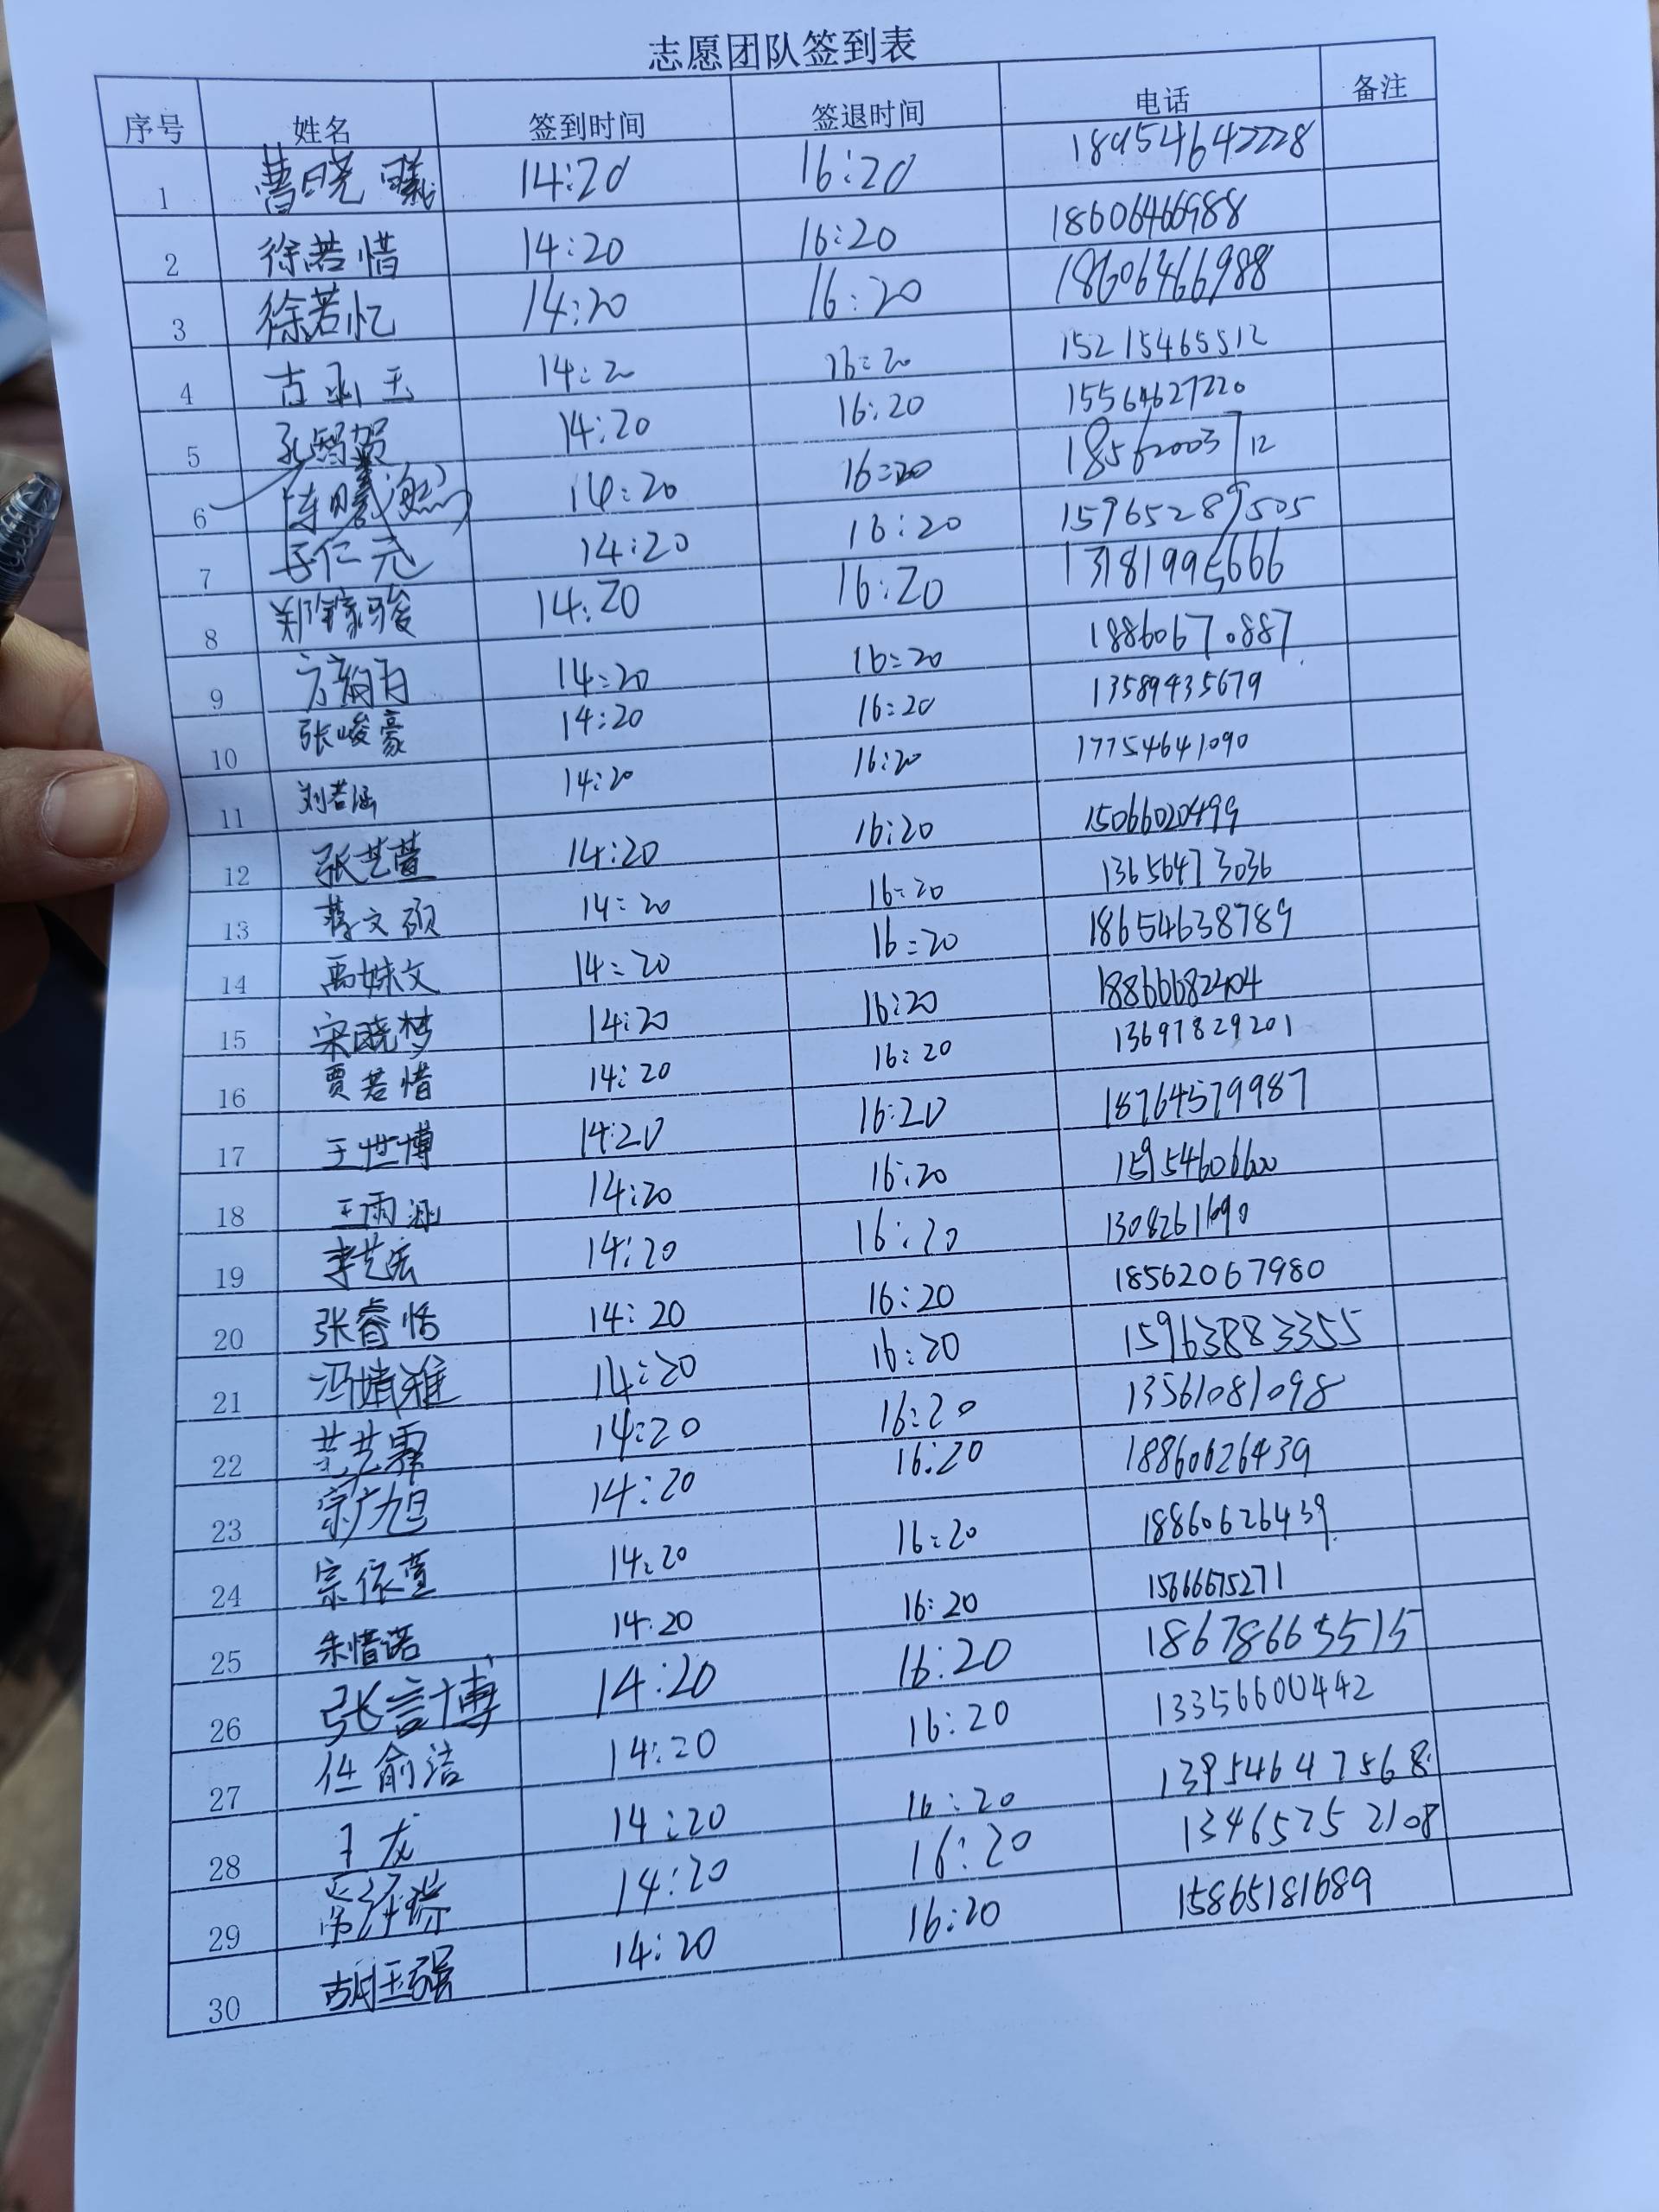 志愿团队签到表
序号 姓名 签到时间 签退时间 电话 备注
1 曹晓曦 14:20 16:20 18954642228
2 徐若惜 14:20 16:20 18606466988
3 徐若忆 14:20 16:20 18606466988
4 14:20 16:20 15215465512
5 孔智贺 14:20 16:20 15564627220
6 陈曦 14:20 16:20 18562003712
7 仁元 14:20 16:20 15965289505
8 郑骏 14:20 16:20 13181995666
9 14:20 16:20 18860670887
10 张峻豪 14:20 16:20 13589435679
11 刘若涵 14:20 16:20 17754641090
12 张艺萱 14:20 16:20 15066020499
13 文硕 14:20 16:20 13656473036
14 文 14:20 16:20 18654638789
15 宋晓梦 14:20 16:20 18866682404
16 贾若惜 14:20 16:20 13697829201
17 王世博 14:20 16:20 18764579987
18 王雨涵 14:20 16:20 15954606600
19 李艺宏 14:20 16:20
20 张睿恬 14:20 16:20 18562067980
21 冯婧雅 14:20 16:20 15963883355
22 范艺霏 14:20 16:20 13561081098
23 宗广旭 14:20 16:20 18860626439
24 宗依萱 14:20 16:20 18860626439
25 朱惜诺 14:20 16:20 15666675271
26 张言博 14:20 16:20 18678665515
27 任俞洁 14:20 16:20 13356600442
28 王龙 14:20 16:20 13954647568
29 14:20 16:20 13465252108
30 胡玉强 14:20 16:20 15865181689